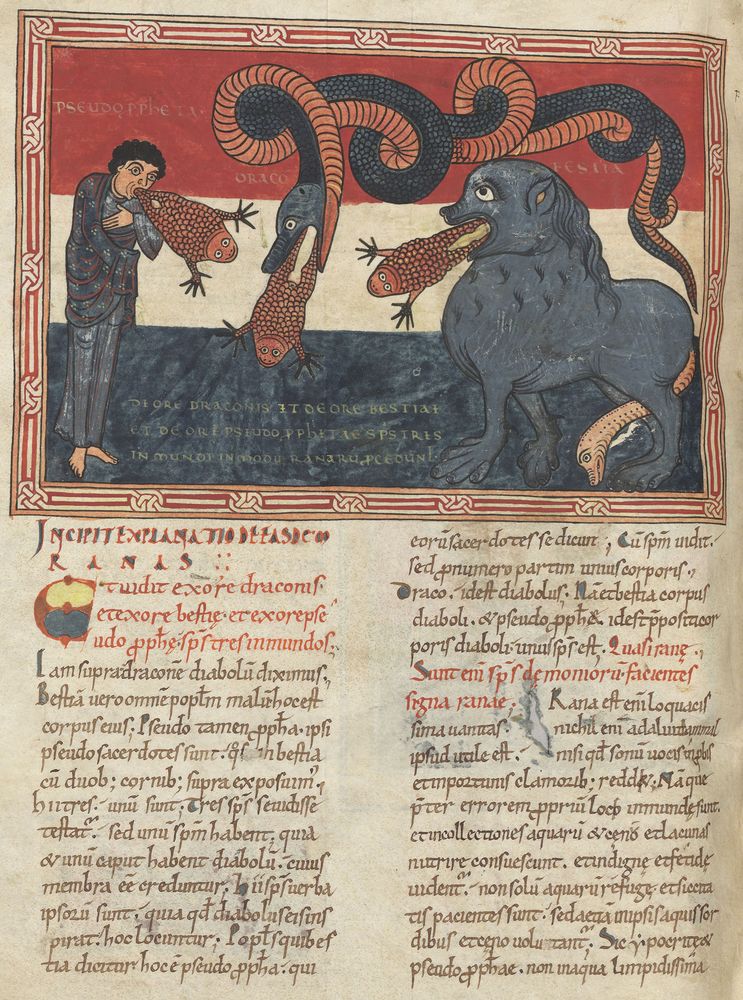 PSEUDO PPHETA
DRACO
BESTIA
DE ORE DRACONIS ET DE ORE BESTIAE
ET DE ORE PSEUDO PPHETAE SPS TRES
IN MUNDI IN MODU RANARU PCEDUNT
INCIPIT EXPLANATIO DE EASDEM
RANAS
Et uidit ex ore draconis
et ex ore bestię et ex ore pse
udo pphę sps tres inmundos;
Iam supra draconē diabolū diximus,
Bestiā uero omnē poplm malū hoc est
corpus eius; Pseudo tamen ppha ipsi
pseudo sacerdotes sunt qs in bestia
cū duob; cornib; supra exposuim;
hi tres unū sunt; Tres sps se uidisse
testat sed unū spm habent quia
& unū caput habent diabolū cuius
membra eē creduntur; hii sps uerba
ipsorū sunt quia qd diabolus eis ins
pirat hoc locuntur; Popls quibes
tia dicitur hoc ē pseudo ppha qui
eorū sacerdotes se dicunt; Cū spm uidit
sed pnumero partim unius corporis
Draco idest diabolus; Nā et bestia corpus
diaboli & pseudo pph& idest ppositi cor
poris diaboli unus sps est; Quasi ranę
Sunt enī sps demoniorū facientes
signa ranae; Rana est enī loquacis
sima uanitas nihil enī ad aliud
ipsud utile est nisi qd sonū uocis
et inportunis clamorib; redd&; Nāque
pter errorem pprium inmunde sunt
et in collectiones aquarū & cęni et lacunas
nutrire consuescunt et indignę et fetidę
uident non solū aquarū refugę et siccita
tis pacientes sunt sed &iā in ipsis aquis sor
dibus et ceno uoluntant; Sic ypocritę &
pseudo pphae non in aqua limpidissima